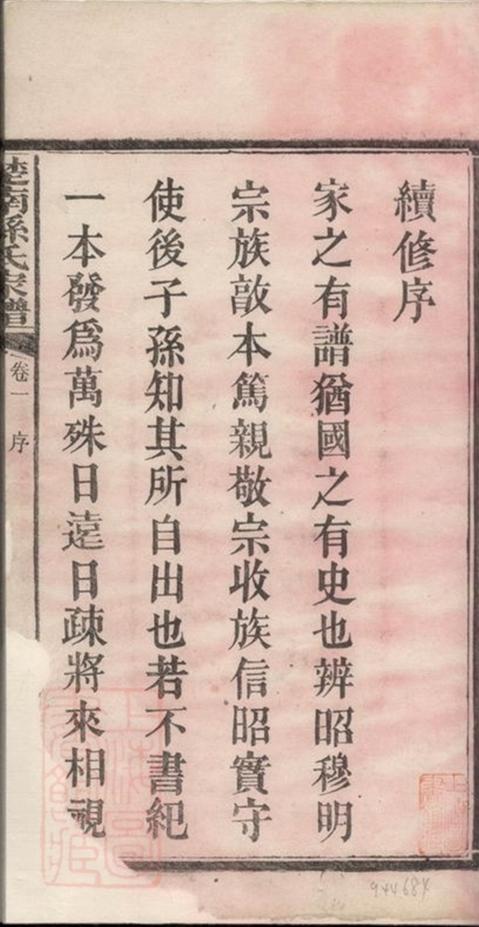 續修序
家之有譜猶國之有史也辨昭穆明
宗族敦本篤親敬宗收族信昭實守
使後子孫知其所自出也若不書紀
一本發爲萬殊日遠日疎將來相視
楚南孫氏家譜
卷一
序
944684